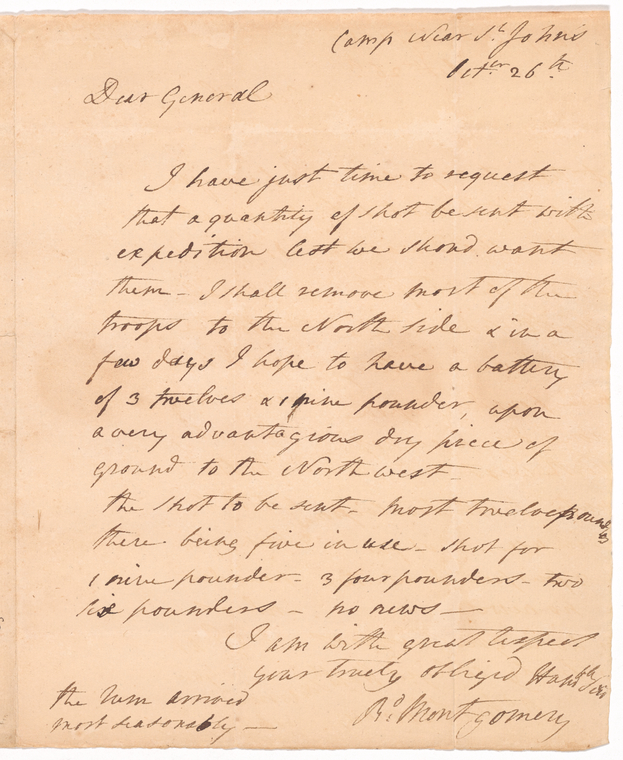 Camp Near St. Johns
Octer. 26th.
Dear General
I have just time to request
that a quantity of shot be sent with
expedition lest we shoud want
them - I shall remove most of the
troops to the North side & in a
few days I hope to have a battery
of 3 twelves & 1 nine pounder, upon
a very advantagious dry piece of
ground to the North west -
the shot to be sent - most twelve pounds
there being five in use - shot for
1 nine pounder - 3 four pounders - two
six pounders - no news -
I am with great respect
your truely obliged Humble Ser
Rd. Montgomery
the rum arrived
most seasonably -